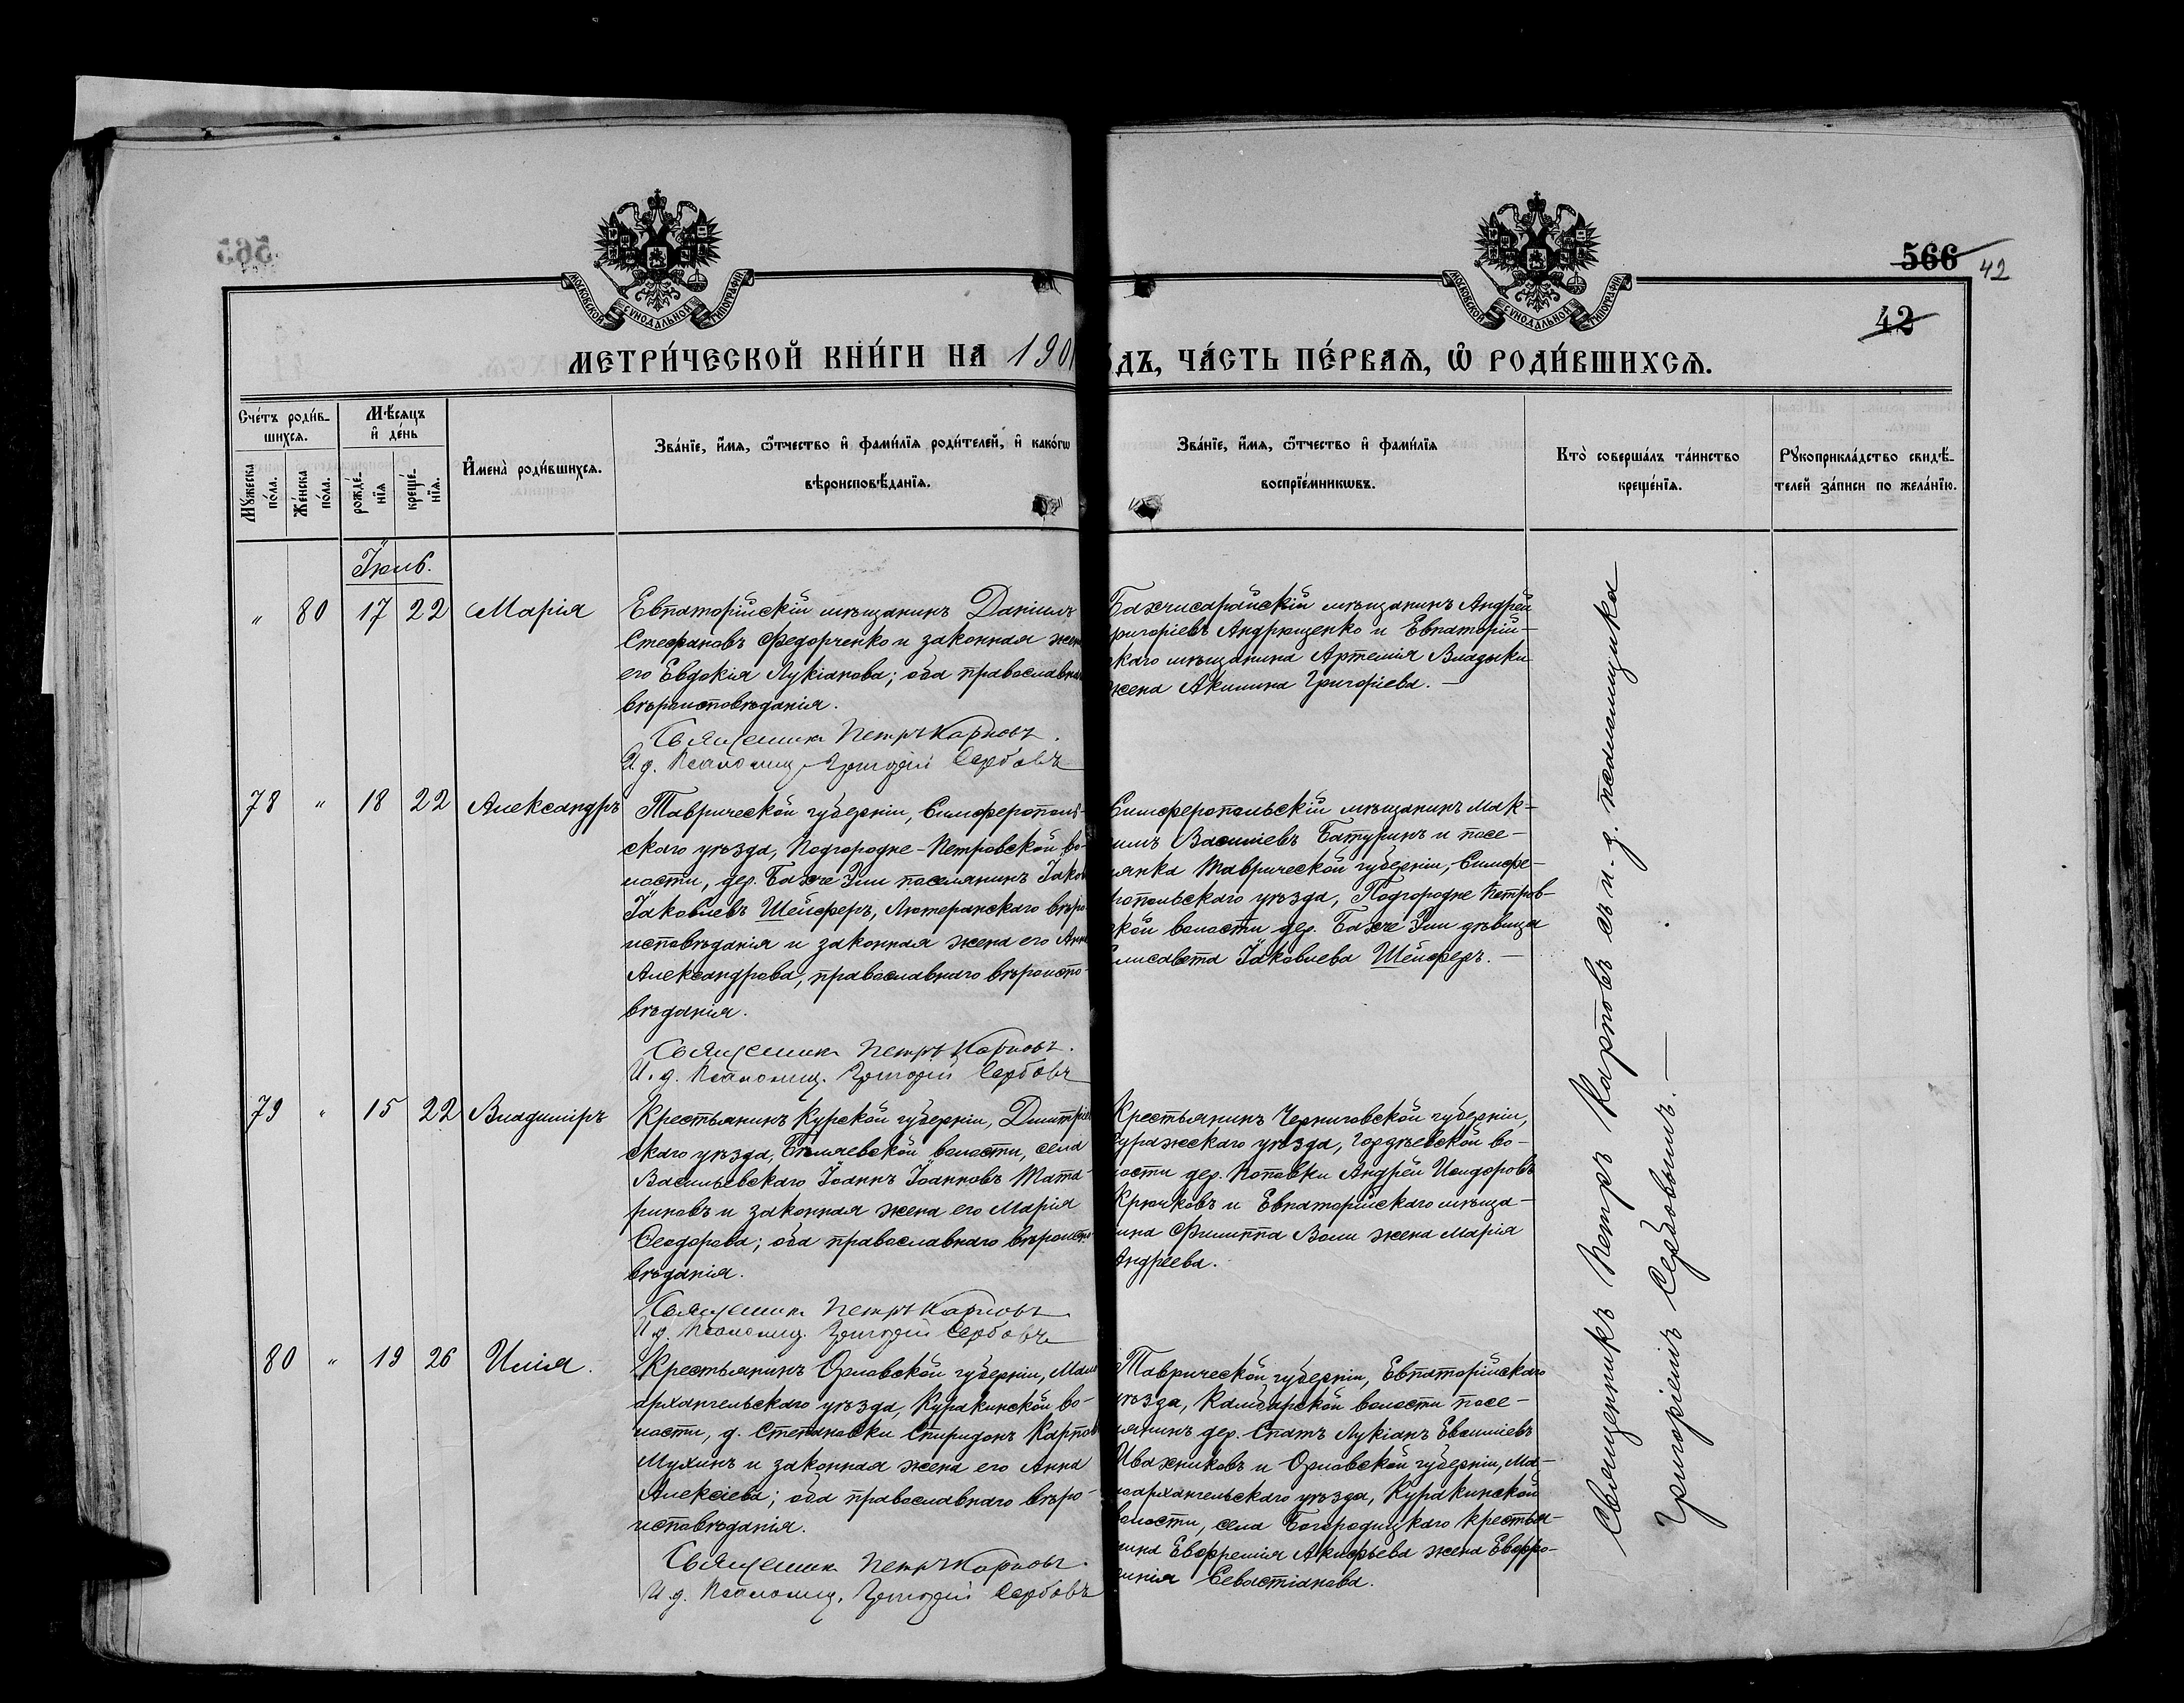 566 42
42
МОСКОВСКОЙ СѴНОДАЛЬНОЙ ТИПОГРАФІИ
МОСКОВСКОЙ СѴНОДАЛЬНОЙ ТИПОГРАФІИ
МЕТРИ́ЧЕСКОЙ КНИ́ГИ НА 190
ДЪ, ЧА́СТЬ ПЕ́РВАѦ, Ѡ҆ РОДИ́ВШИХСѦ.
Сче́тъ роди́в-
шихсѧ.
Мꙋ́жеска по́ла.
Же́нска по́ла.
Мѣ́сѧцъ
и҆ де́нь
рожде́-
нїѧ
креще́-
нїѧ.
И҆мена̀ роди́вшихсѧ.
Зва́нїе, и҆́мѧ, ѻ҆́тчество и҆ фами́лїѧ роди́телей, и҆ како́гѡ
вѣроисповѣ́данїѧ.
Зва́нїе, и҆́мѧ, ѻ҆́тчество и҆ фами́лїѧ
воспрїе́мникѡвъ.
Кто̀ соверша́лъ та́инство
креще́нїѧ.
Рꙋкоприкла́дство свидѣ́-
телей за́писи по жела́нїю.
Іюнь.
" 80 17 22 Марія
Евпаторійскій мѣщанинъ Даніилъ
Стефановъ Федорченко и законная жена
его Евдокія Лукіанова; оба православнаго
вѣроисповѣданія.
Священникъ Петръ Карповъ.
И. д. Псаломщ. Григорій Сербовъ
Бахчисарайскій мѣщанинъ Андрей
ригоріевъ Андрющенко и Евпаторій-
скаго мѣщанина Артемія Владыки
жена Акилина Григоріева. —
78 " 18 22 Александръ
Таврической губерніи, Симферополь-
скаго уѣзда, Подгородне-Петровской во-
лости, дер. Бахче Эли поселянинъ Іаковъ
Іаковлевъ Шейферъ, Лютеранскаго вѣро-
исповѣданія и законная жена его Анна
Александрова, православнаго вѣроиспо-
вѣданія.
Священникъ Петръ Карповъ.
И. д. Псаломщ. Григорій Сербовъ
Симферопольскій мѣщанинъ Мак-
симъ Василіевъ Батуринъ и посе-
лянка Таврической губерніи, Симфе-
ропольскаго уѣзда, Подгородне Петров-
ской волости дер. Бахче Эли дѣвица
Елисавета Іаковлева Шейферъ. —
79 " 15 22 Владиміръ
Крестьянинъ Курской губерніи, Дмитріев-
скаго уѣзда, Бѣляевской волости, села
Васильевскаго Іоаннъ Іоанновъ Тата-
риновъ и законная жена его Марія
Ѳеодорова; оба православнаго вѣроиспо-
вѣданія.
Священникъ Петръ Карповъ
И. д. Псаломщ. Григорій Сербовъ
Крестьянинъ Черниговской губерніи,
Суражскаго уѣзда, Гордѣевской во-
лости дер. Поповки Андрей Исидоровъ
Крючковъ и Евпаторійскаго мѣща-
нина Филиппа Воли жена Марія
Андреева.
80 " 19 26 Илія.
Крестьянинъ Орловской губерніи, Мало-
архангельскаго уѣзда, Куракинской во-
лости, д. Степановки Спиридонъ Карповъ
Мухинъ и законная жена его Анна
Алексіева; оба православнаго вѣро-
исповѣданія.
Священникъ Петръ Карповъ.
И. д. Псаломщ. Григорій Сербовъ
Таврической губерніи, Евпаторійскаго
уѣзда, Камбарской волости посе-
лянинъ дер. Спатъ Лукіанъ Евсиліевъ
Ивахниковъ и Орловской губерніи, Ма-
лоархангельскаго уѣзда, Куракинской
волости, села Богородицкаго крестья-
нина Евфремія Акифьева жена Евфро-
синія Севастіанова.
Священникъ Петръ Карповъ съ и. д. псаломщика
Григоріемъ Сербовымъ. —